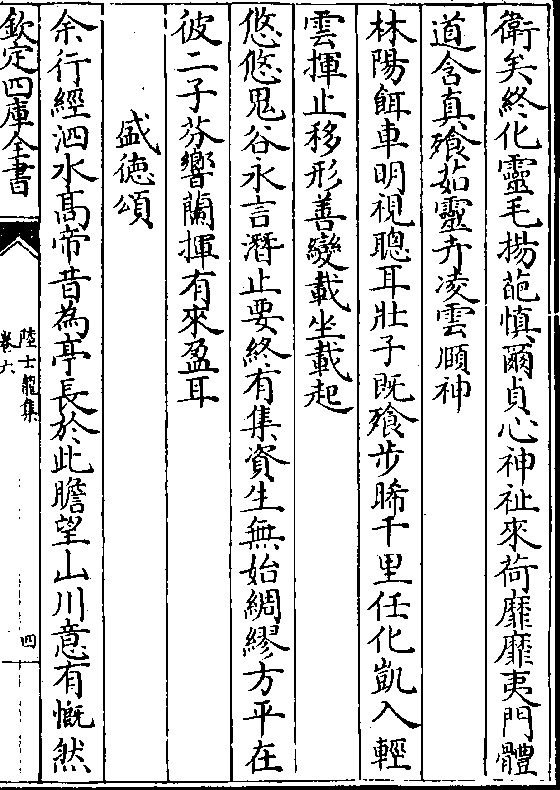 衛矣終化靈毛揚葩慎爾貞心神祉來荷靡靡夷門體
道含真飱茹靈卉凌雲頤神
林陽餌車明視聰耳壯子既飱步晞千里任化凱入輕
雲揮止移形善變載坐載起
悠悠鬼谷永言潛止要終有集資生無始綢繆方平在
彼二子芬響蘭揮有來盈耳
盛徳頌
余行經泗水髙帝昔為亭長於此瞻望山川意有慨然
欽定四庫全書
陸士龍集
卷六
四